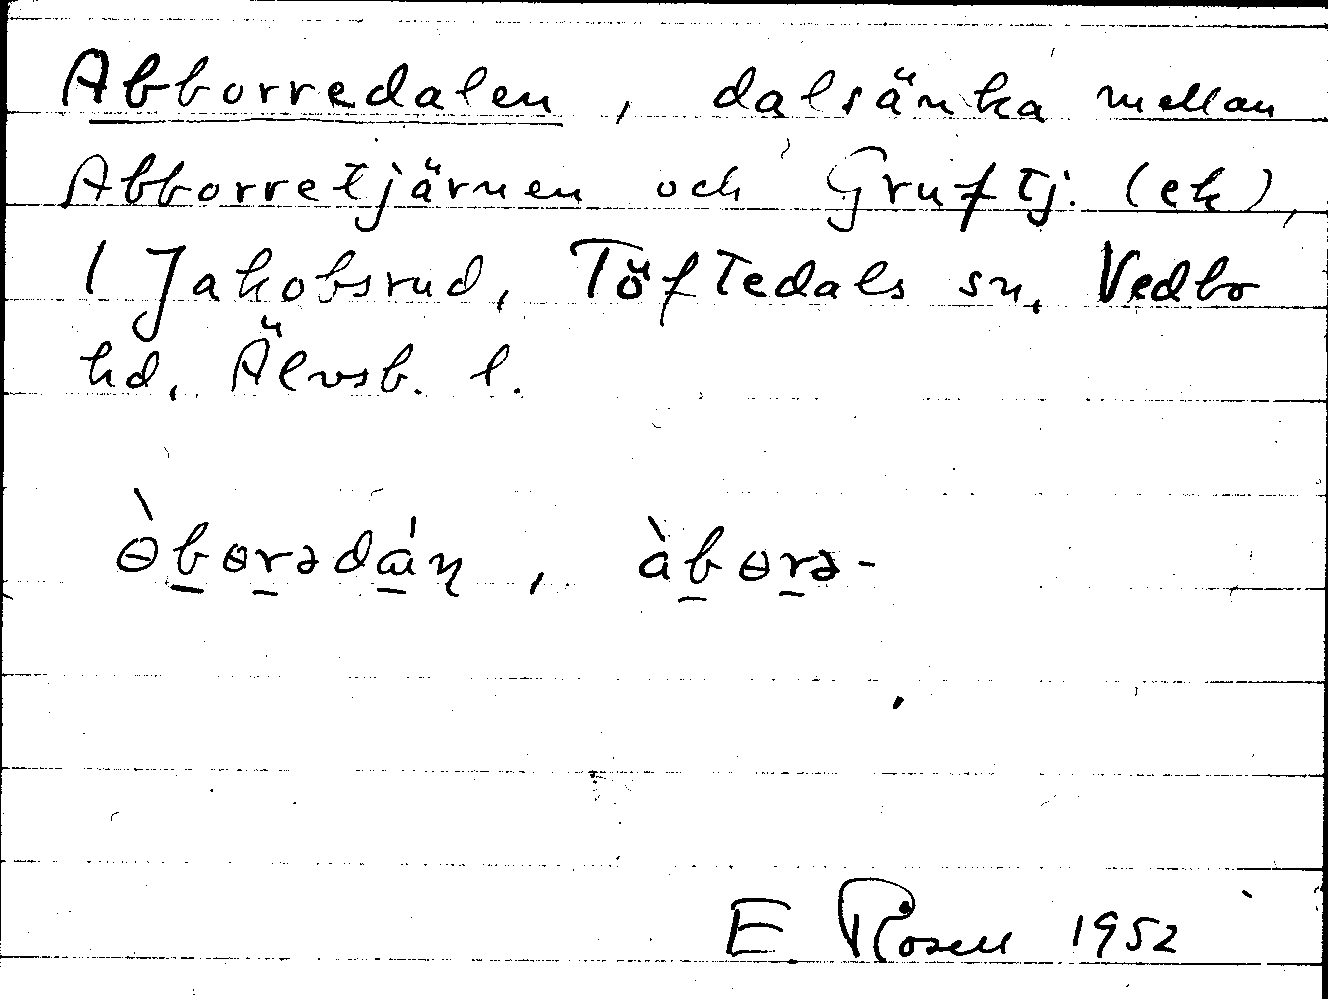 Abborredalen, dalsänka mellan
Abborretjärnen och Gruftj. (ek),
1 Jakobsrud, Töftedals sn, Vedbo
hd, Älvsb. l.
ɵ̀bɵrədáɳ, àbɵrə-
E. Rosell 1952